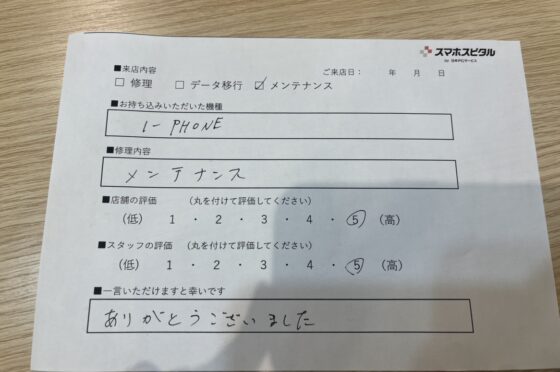 スマホスピタル
by 日本PCサービス
■来店内容
ご来店日： 年 月 日
□ 修理 □ データ移行 ☑ メンテナンス
■お持ち込みいただいた機種
I-PHONE
■修理内容
メンテナンス
■店舗の評価 （丸を付けて評価してください）
（低） 1 ・ 2 ・ 3 ・ 4 ・ 5 （高）
■スタッフの評価 （丸を付けて評価してください）
（低） 1 ・ 2 ・ 3 ・ 4 ・ 5 （高）
■一言いただけますと幸いです
ありがとうございました